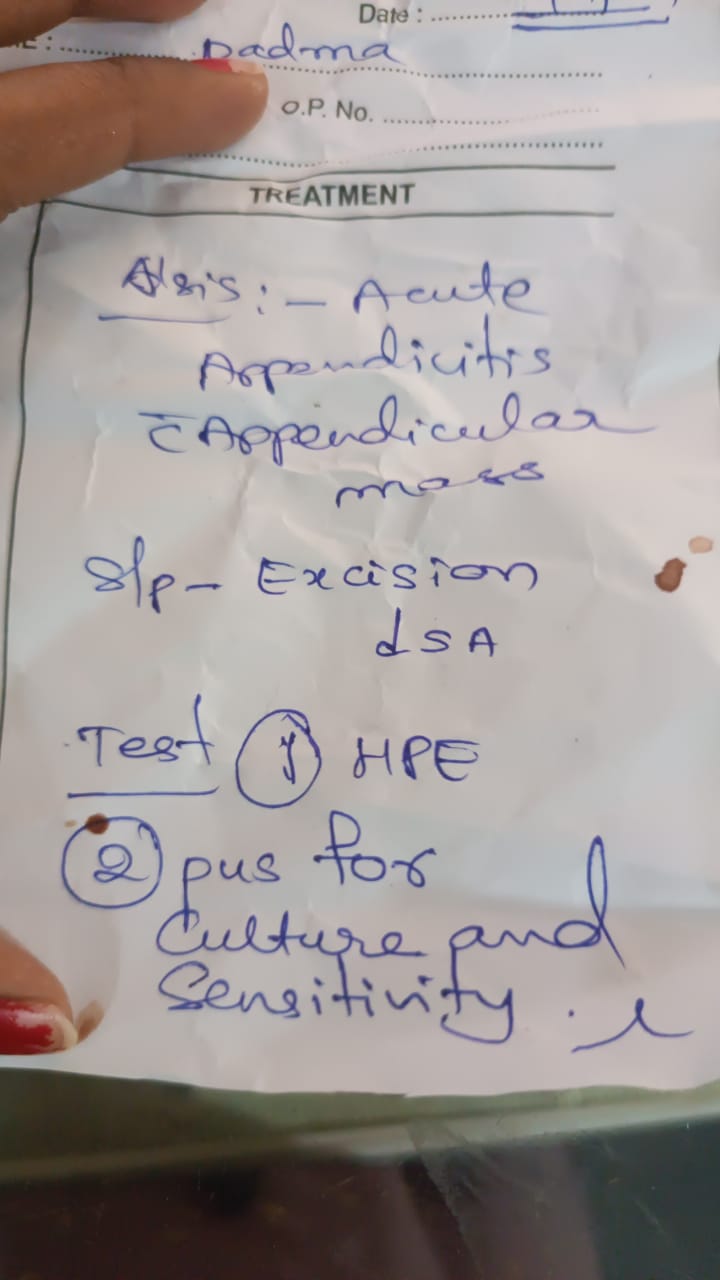 Date : ..........
E : .......... Padma
O.P. No. ..........
TREATMENT
:- Acute
Appendicitis
c̄ Appendicular
mass
S/p - Excision
d S A
Test ① HPE
② pus for
Culture and
Sensitivity.